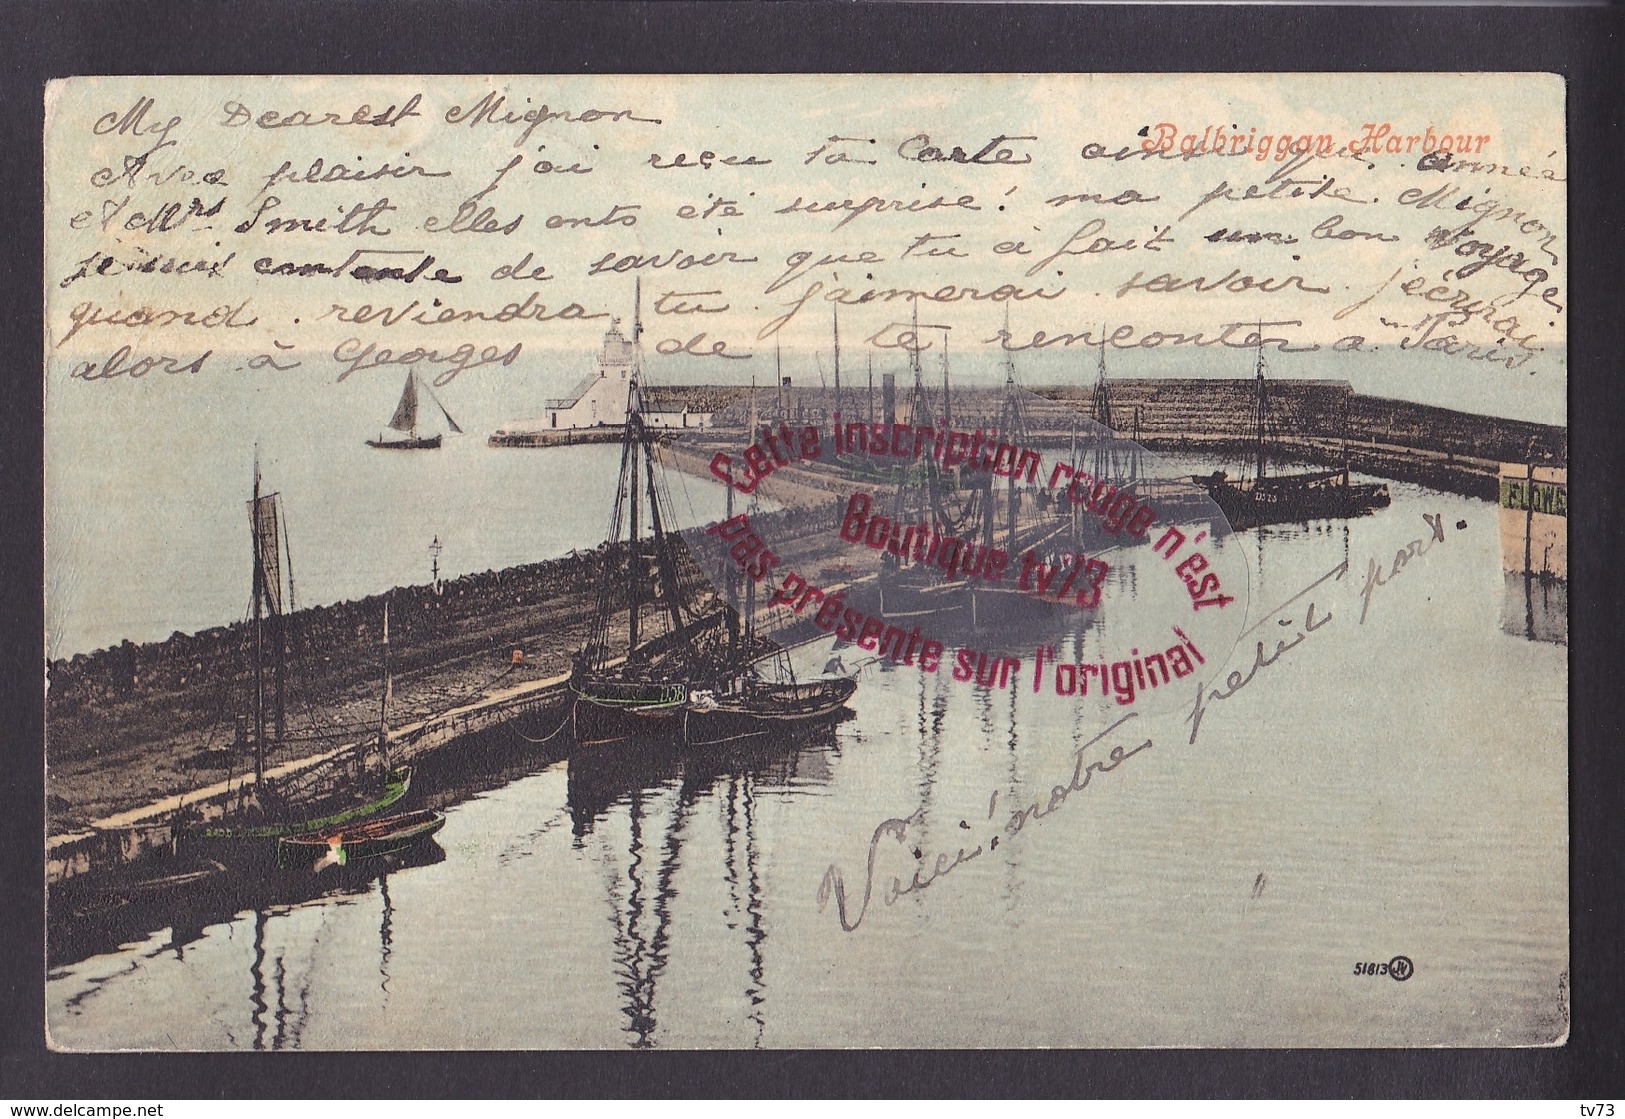 My Dearest Mignon
Balbriggan Harbour
Avec plaisir j'ai reçu ta Carte ainsi que Année
et Mrs Smith elles onts été surprise! ma petite Mignon
je suis contante de savoir que tu à fait un bon Voyage
quand . reviendra tu j'aimerai savoir j'écrirai
alors à Georges de te rencontrer à Paris.
Cette inscription rouge n'est
Boutique tv73
pas présente sur l'original
FLOWE
DS23
Voici! notre petit port.
51813 JV
www.delcampe.net
tv73